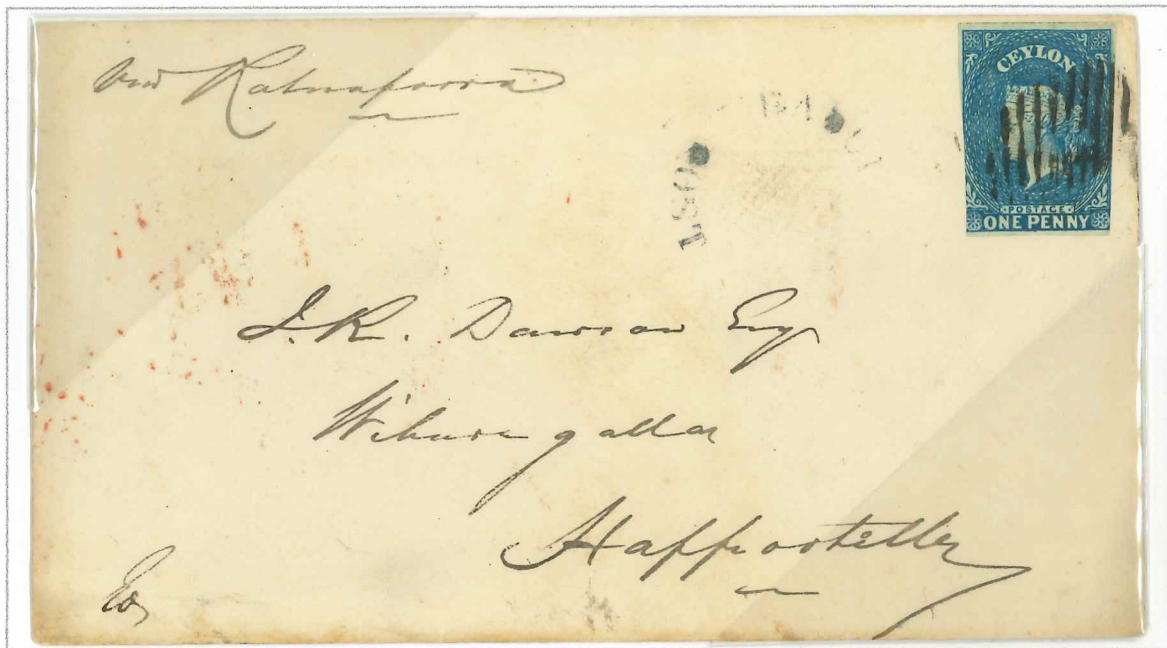 via Ratnapoora
CEYLON
POSTAGE
ONE PENNY
POST PAID
J. R. Dawson Esq
Wihuregalla
Happootella